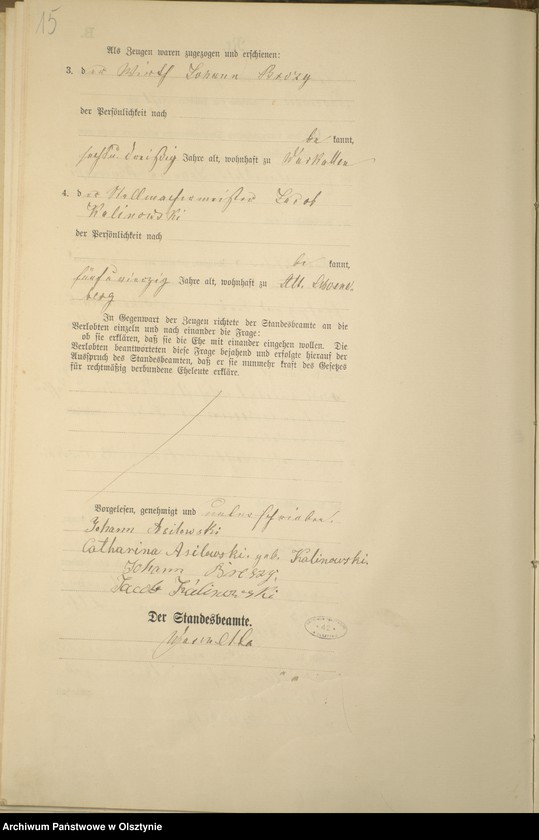 15
Als Zeugen waren zugezogen und erschienen:
3. der Wirth Johann Broszy
der Persönlichkeit nach
be kannt,
sechsu. dreißig Jahre alt, wohnhaft zu
4. der Stellmachermeister Jacob
Kalinowski
der Persönlichkeit nach
be kannt,
fünfu vierzig Jahre alt, wohnhaft zu Alt Schoene-
berg
In Gegenwart der Zeugen richtete der Standesbeamte an die
Verlobten einzeln und nach einander die Frage:
ob sie erklären, daß sie die Ehe mit einander eingehen wollen. Die
Verlobten beantworteten diese Frage bejahend und erfolgte hierauf der
Ausspruch des Standesbeamten, daß er sie nunmehr kraft des Gesetzes
für rechtmäßig verbundene Eheleute erkläre.
Vorgelesen, genehmigt und unterschrieben.
Johann Asilowski
Catharina Asilowski, geb. Kalinowski.
Johann Broszy.
Jacob Kalinowski
Der Standesbeamte.
Archiwum Państwowe w Olsztynie